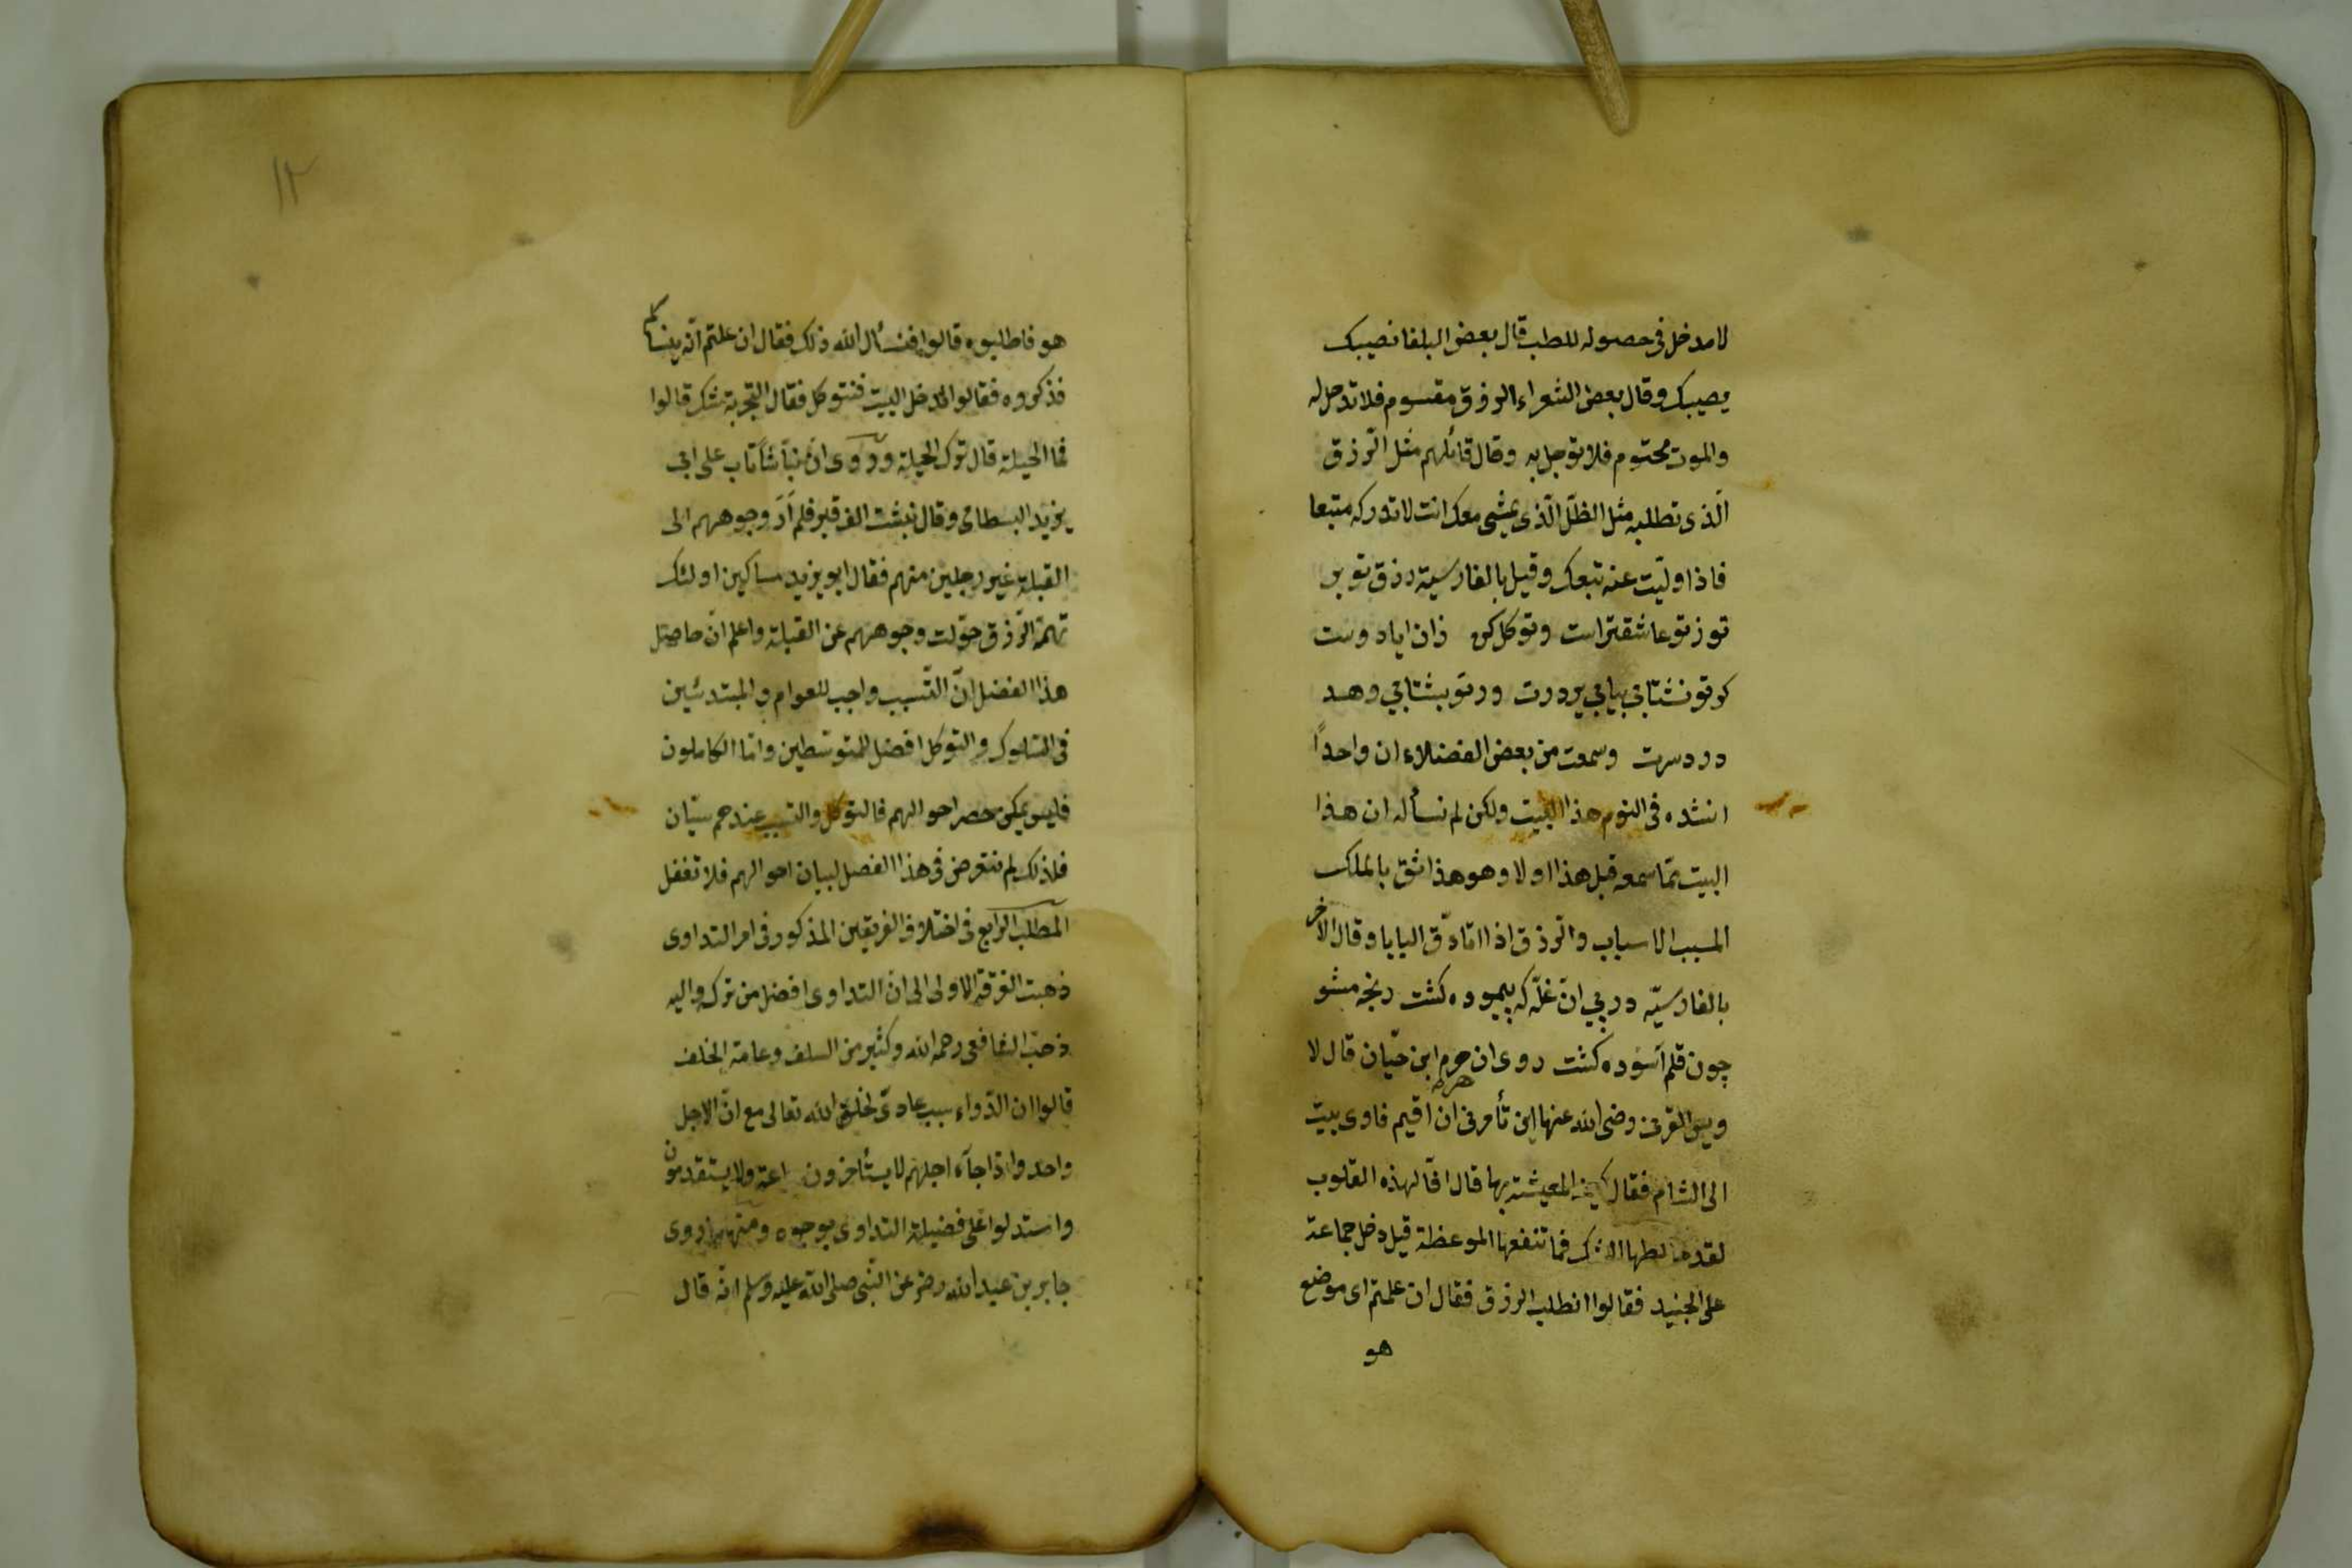 لا مدخل فى حصوله للطب قال بعض البلغا نصيبك
يصيبك وقال بعض الشعراء الرزق مقسوم فلا تدخل له
والموت محتوم فلا توجل به وقال قائلهم مثل الرّزق
الّذى تطلبه مثل الظلّ الّذى يمشى معك انت لا تدركه متبعا
فاذا ولّيت عنه تبعك وقيل بالفارسية رزق تو بر
تو ز تو عاشقتر است وتوكل كن زان اياد وست
كر تو نشتابى بيابى بردرت ور تو بشتابى دهد
درد سرت وسمعت من بعض الفضلاء ان واحداً
انشده فى النوم هذا البيت ولكن لم نسأله ان هذا
البيت ممّا سمعه قبل هذا اولا وهو هذا ثق بالملك
المسبب الاسباب والرّزق اذا اتا دقّ البابا وقال الآخر
بالفارسيّه در پى ان غلّه كه پيموده كشت رنجه مشو
چون قلم آسوده كشت روى ان هرم ابن حيّان قال لا
ويس القرنى رضى الله عنها اين تأمرنى ان اقيم فاوى بيت
الى الشام فقال كيف المعيشة بها قال افّا لهذه القلوب
لقد خالطها الشك فما تنفعها الموعظة قيل دخل جماعة
على الجنيد فقالوا انطلب الرزق فقال ان علمتم اى موضع
هو
١٢
هو فاطلبوه قالوا فنسأل الله ذلك فقال ان علمتم انّه ينساكم
فذكروه فقالوا ندخل البيت فنتوكل فقال التجربة شك قالوا
فما الحيلة قال ترك الحيلة وروى انّ نبّاشاً تاب على ابى
يزيد البسطامى وقال نبشت الف قبر فلم أَرَ وجوههم الى
القبلة غير رجلين منهم فقال ابو يزيد مساكين اولئك
تهمة الرّزق حوّلت وجوههم عن القبلة واعلم انّ حاصل
هذا الفصل انّ التّسبب واجب للعوام و المبتدئين
فى السّلوك والتوكل افضل للمتوسّطين وامّا الكاملون
فليس يمكن حصر احوالهم فالتوكل والتسبب عندهم سيّان
فلذلك لم نتعرض فى هذا الفصل لبيان احوالهم فلا تغفل
المطلب الرابع فى اختلاف الفريقين المذكور فى امر التداوى
ذهبت الفرقة الاولى الى انّ التداوى افضل من تركه واليه
ذهبت الشافعى رحمه الله وكثير من السلف وعامة الخلف
قالوا ان الدّواء سبب عادىّ لخلق الله تعالى مع انّ الاجل
واحد واذا جآء اجلهم لا يستأخرون ساعة ولا يستقدمون
واستدلوا على فضيلة التداوى بوجوه ومنها ما روى
جابر بن عبد الله رضى عن النّبى صلى الله عليه وسلم انّه قال